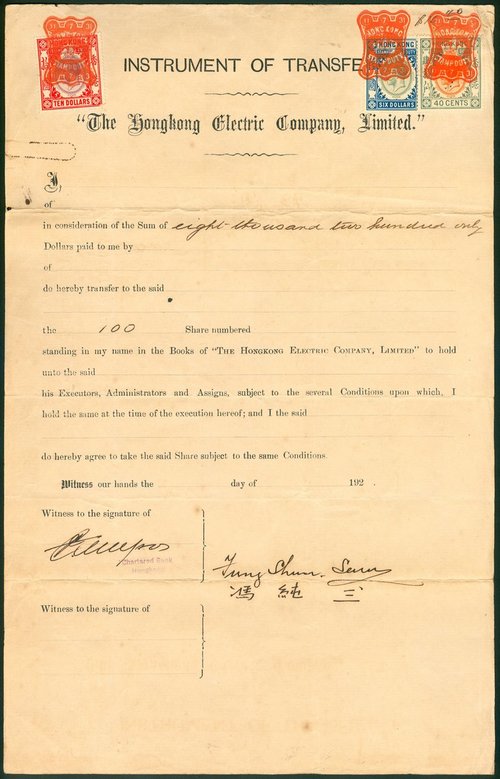 HONGKONG
STAMP DUTY
TEN DOLLARS
HONGKONG
SIX DOLLARS
HONGKONG
STAMP DUTY
40 CENTS
INSTRUMENT OF TRANSFE
"The Hongkong Electric Company, Limited."
I,
of
in consideration of the Sum of eight thousand two hundred only
Dollars paid to me by
of
do hereby transfer to the said
the 100 Share numbered
standing in my name in the Books of "THE HONGKONG ELECTRIC COMPANY, LIMITED" to hold
unto the said
his Executors, Administrators and Assigns, subject to the several Conditions upon which, I
hold the same at the time of the execution hereof; and I the said
do hereby agree to take the said Share subject to the same Conditions.
Witness our hands the day of 192 .
Witness to the signature of
Chartered Bank
Hongkong
Fung Shun
馮 純 三
Witness to the signature of